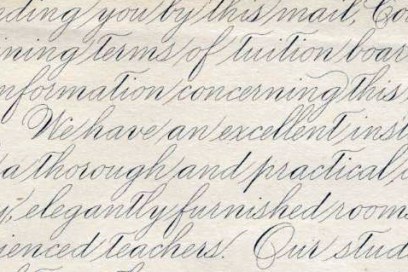 ding you by this mail, Co
ining terms of tuition boar
nformation concerning this
We have an excellent inst
a thorough and practical
y, elegantly furnished room
ienced teachers. Our stud